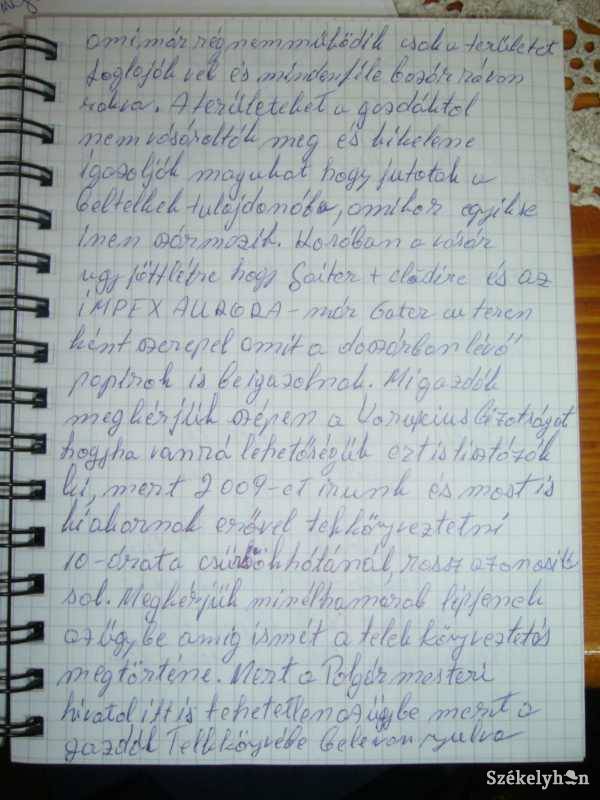 ami már rég nem működik csak a területet
foglaják vel és mindenféle bozár rávan
rakva. A területeket a gazdáktol
nem vásárolták meg és kikelene
igazolják magukat hogy jutotak a
beltelkek tulajdonába, amikor egyikse
inen származik. Korában a vásár
ugy jött létre hogy Gáter + eladire és az
IMPEX AURORA - már Gater au teren
ként szerepel amit a doszárban lévő
papirok is beigazolnak. Mi gazdák
megkérjük szépen a Korupcius bizotságot
hogyha van rá lehetőségük ezt is tisztázák
ki, mert 2009-et irunk és most is
kiakarnak erővel tekkönyveztetni
10-árat a csűrök hátánál, rossz azonosik
sal. Megkérjük minélhamarab lépjenek
az ügybe amig ismét a telekkönyveztetés
megtörténe. Mert a Polgármesteri
hivatal itt is tehetetlen az ügybe mert a
gazdák Telkkönyvébe belevan nyulva
Székelyhon